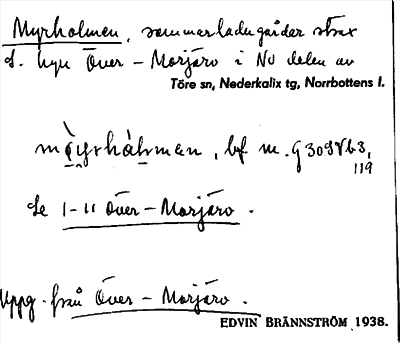 Myrholmen, sommarladugårdar strax
S. byn Över-Morjärv i NV delen av
Töre sn, Nederkalix tg, Norrbottens l.
bf m.
Se 1-11 Över-Morjärv.
Uppg. från Över-Morjärv.
EDVIN BRÄNNSTRÖM 1938.